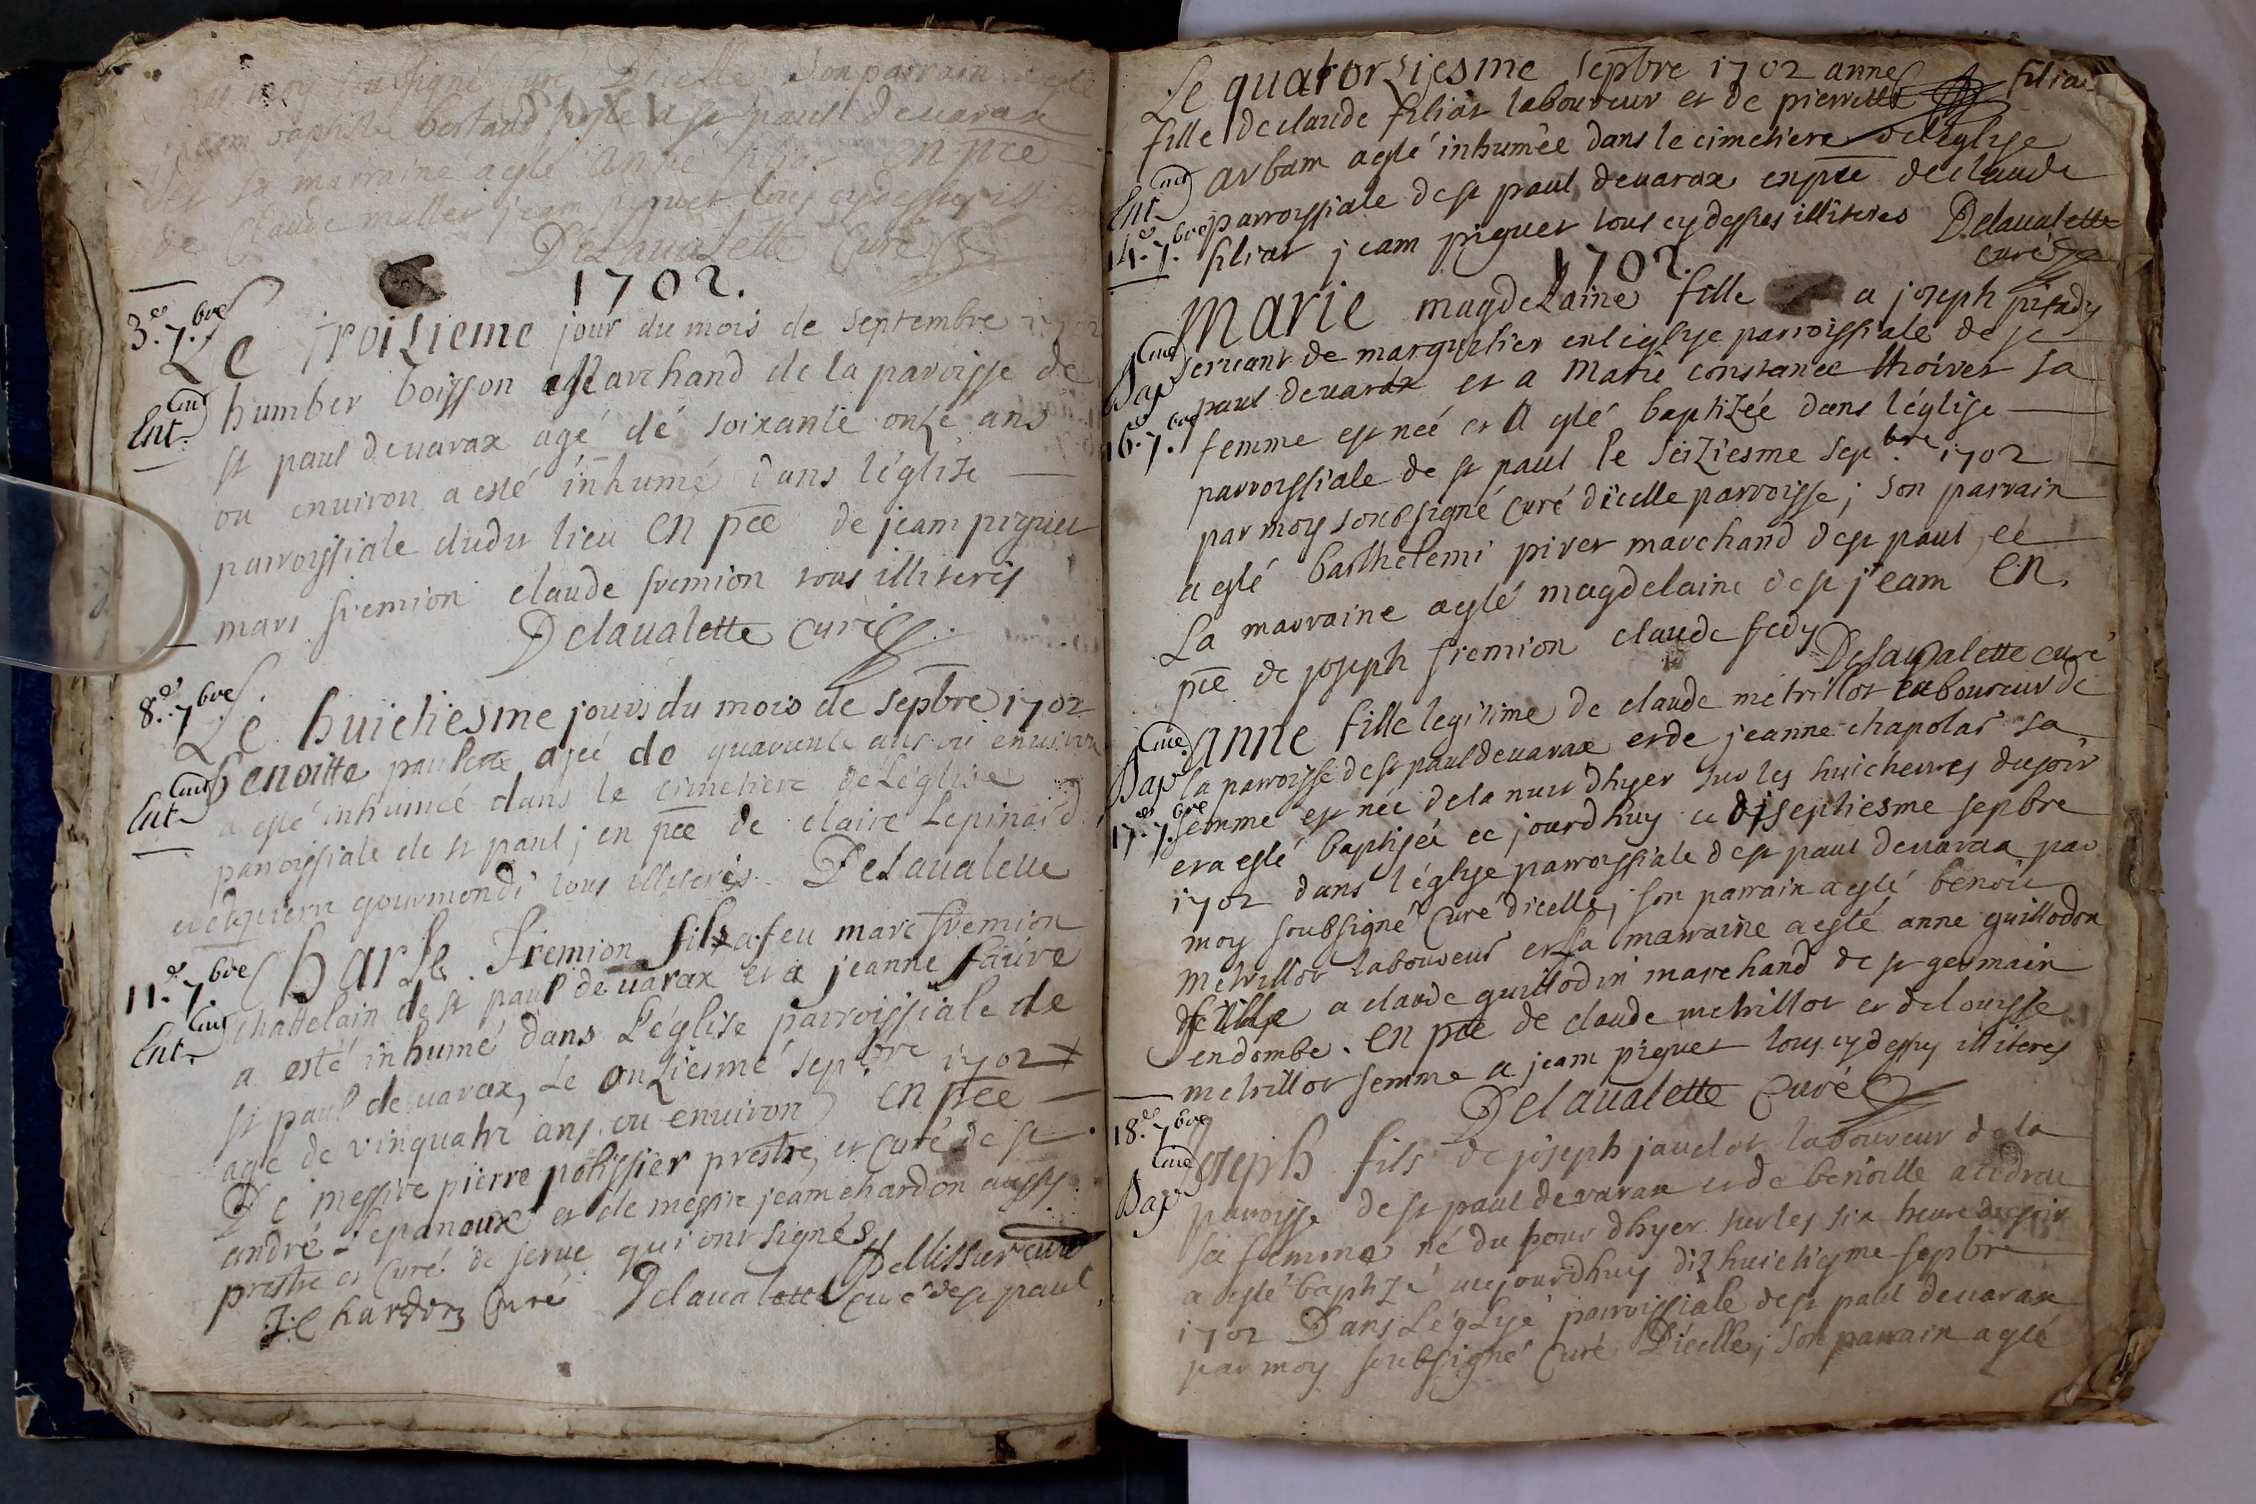 moy soubsigné curé Dicelle, son parrain a esté
jeam baptiste bertaud hoste a st paul devarax
sa marraine a esté anne filiat en pñce
de Claude jeam piguet tous cydessus
Delavalette Curé
1702.
3.e 7.bre
Le troizieme jour du mois de septembre 1702
Ent Curé humber boisson marchand de la paroisse de
st paul devarax agé dé soixante onze ans
ou environ a esté inhumé dans léglise
parroissiale dudit lieu en pñce de jeam piguet
marc fremion claude fremion tous illiterés
Delavalette curé
8.e 7bre
Le huictiesme jour du mois de sepbre 1702
Benoitte agée de quarante ans ou environ
Ent Curé a esté inhumeé dans le cimetiere de Léglise
parroissiale de st paul; en pñce de claire Lepinard
et gourmond tous illiterés. Delavalette
11.e 7.bre Charle fremion fils a feu marc fremion
Ent Curé chattelain de st paul devarax et a jeanne faivre
a esté inhumé dans Léglise parroissiale de
st paul devarax, Le onziesme sepbre 1702
age de vinquatre ans ou environ en pñce
De messire pierre polissier prestre, et curé de st
andré Lepanoux et de messire jeam chardon aussy
prestre et curé de serve qui ont signés
Pellissier curé
J. Chardon Curé Delavalette curé de st paul
Le quatorziesme sepbre 1702 anne filiat
fille de claude filiat laboureur et de pierrette
Ent Curé arbam a esté inhumée dans le cimetiere deléglyse
14.e 7.bre parroissiale de st paul devarax en pñce declaude
filiat jeam piguet tous cydessus illiteres Delavalette
curé
1702.
Marie magdelaine fille a joseph
Bap Curé servant de margulier en léglyse parroissiale de st
paul devarax et a marie constance thoivet sa
16.e 7.bre femme est neé et a esté baptizée dans léglise
parroissiale de st paul le seiziesme sepbre 1702
par moy soubsigné curé dicelle parroisse; son parrain
a esté barthelemi pivet marchand de st paul, et
La marraine a esté magdelaine de st jeam en
pñce de joseph fremion claude fedy
Delavalette curé
anne fille legitime de claude metrillot laboureur de
Bap Curé la parroisse de st paul devarax et de jeanne chapolar sa
17.e 7.bre femme est née de la nuit dhyer sur les huict heures dusoir
et a esté baptisée ce jourdhuy ce disseptiesme sepbre
1702 dans léglyse parroissiale de st paul devarax par
moy soubsigné curé dicelle, son parrain a esté benoit
metrillot laboureur et sa marraine a esté anne guillodon
fille a claude guillodin marchand de st germain
endombe. en pñce de claude metrillot et de louisse
metrillot femme a jeam piguet tous cydessus illiteres
Delavalette curé
18.e 7bre
Joseph fils de joseph javelot laboureur dela
Bap Curé paroisse de st paul devarax et de benoitte
sa femme né du jour dhyer sur les six heure dusoir
a esté baptizé aujourdhuy dizhuictiesme sepbre
1702 Dans Léglyse parroissiale de st paul devarax
par moy soubsigné curé Dicelle, son parrain a esté